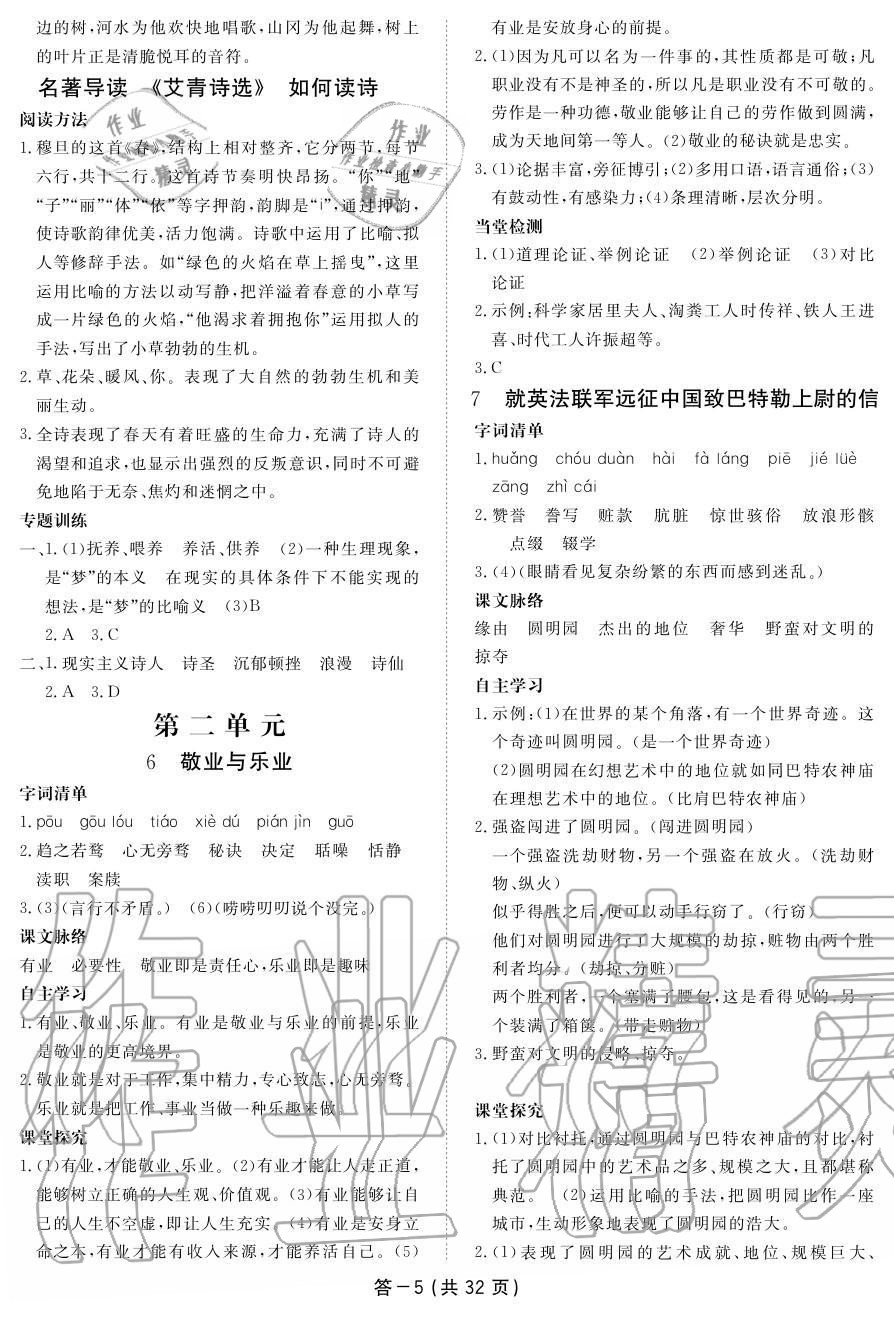 边的树,河水为他欢快地唱歌,山冈为他起舞,树上
的叶片正是清脆悦耳的音符。
名著导读 《艾青诗选》 如何读诗
阅读方法
1.穆旦的这首《春》,结构上相对整齐,它分两节,每节
六行,共十二行。这首诗节奏明快昂扬。“你”“地”
“子”“丽”“体”“依”等字押韵,韵脚是“i”,通过押韵,
使诗歌韵律优美,活力饱满。诗歌中运用了比喻、拟
人等修辞手法。如“绿色的火焰在草上摇曳”,这里
运用比喻的方法以动写静,把洋溢着春意的小草写
成一片绿色的火焰,“他渴求着拥抱你”运用拟人的
手法,写出了小草勃勃的生机。
2.草、花朵、暖风、你。表现了大自然的勃勃生机和美
丽生动。
3.全诗表现了春天有着旺盛的生命力,充满了诗人的
渴望和追求,也显示出强烈的反叛意识,同时不可避
免地陷于无奈、焦灼和迷惘之中。
专题训练
一、1.(1)抚养、喂养 养活、供养 (2)一种生理现象,
是“梦”的本义 在现实的具体条件下不能实现的
想法,是“梦”的比喻义 (3)B
2.A 3.C
二、1.现实主义诗人 诗圣 沉郁顿挫 浪漫 诗仙
2.A 3.D
第二单元
6 敬业与乐业
字词清单
1.pōu gōu lóu tiáo xiè dú pián jìn guō
2.趋之若鹜 心无旁骛 秘诀 决定 聒噪 恬静
渎职 案牍
3.(3)(言行不矛盾。) (6)(唠唠叨叨说个没完。)
课文脉络
有业 必要性 敬业即是责任心,乐业即是趣味
自主学习
1.有业、敬业、乐业。有业是敬业与乐业的前提,乐业
是敬业的更高境界。
2.敬业就是对于工作,集中精力,专心致志,心无旁骛。
乐业就是把工作、事业当做一种乐趣来做。
课堂探究
1.(1)有业,才能敬业、乐业。(2)有业才能让人走正道,
能够树立正确的人生观、价值观。(3)有业能够让自
己的人生不空虚,即让人生充实。(4)有业是安身立
命之本,有业才能有收入来源,才能养活自己。(5)
有业是安放身心的前提。
2.(1)因为凡可以名为一件事的,其性质都是可敬;凡
职业没有不是神圣的,所以凡是职业没有不可敬的。
劳作是一种功德,敬业能够让自己的劳作做到圆满,
成为天地间第一等人。(2)敬业的秘诀就是忠实。
3.(1)论据丰富,旁征博引;(2)多用口语,语言通俗;(3)
有鼓动性,有感染力;(4)条理清晰,层次分明。
当堂检测
1.(1)道理论证、举例论证 (2)举例论证 (3)对比
论证
2.示例:科学家居里夫人、淘粪工人时传祥、铁人王进
喜、时代工人许振超等。
3.C
7 就英法联军远征中国致巴特勒上尉的信
字词清单
1.huǎng chóu duàn hài fà láng piē jié lüè
zāng zhì cái
2.赞誉 誊写 赃款 肮脏 惊世骇俗 放浪形骸
点缀 辍学
3.(4)(眼睛看见复杂纷繁的东西而感到迷乱。)
课文脉络
缘由 圆明园 杰出的地位 奢华 野蛮对文明的
掠夺
自主学习
1.示例:(1)在世界的某个角落,有一个世界奇迹。这
个奇迹叫圆明园。(是一个世界奇迹)
(2)圆明园在幻想艺术中的地位就如同巴特农神庙
在理想艺术中的地位。(比肩巴特农神庙)
2.强盗闯进了圆明园。(闯进圆明园)
一个强盗洗劫财物,另一个强盗在放火。(洗劫财
物、纵火)
似乎得胜之后,便可以动手行窃了。(行窃)
他们对圆明园进行了大规模的劫掠,赃物由两个胜
利者均分。(劫掠、分赃)
两个胜利者,一个塞满了腰包,这是看得见的,另一
个装满了箱箧。(带走赃物)
3.野蛮对文明的侵略、掠夺。
课堂探究
1.(1)对比衬托,通过圆明园与巴特农神庙的对比,衬
托了圆明园中的艺术品之多、规模之大,且都堪称
典范。 (2)运用比喻的手法,把圆明园比作一座
城市,生动形象地表现了圆明园的浩大。
2.(1)表现了圆明园的艺术成就、地位、规模巨大、
答－5(共 32 页)
作业精灵